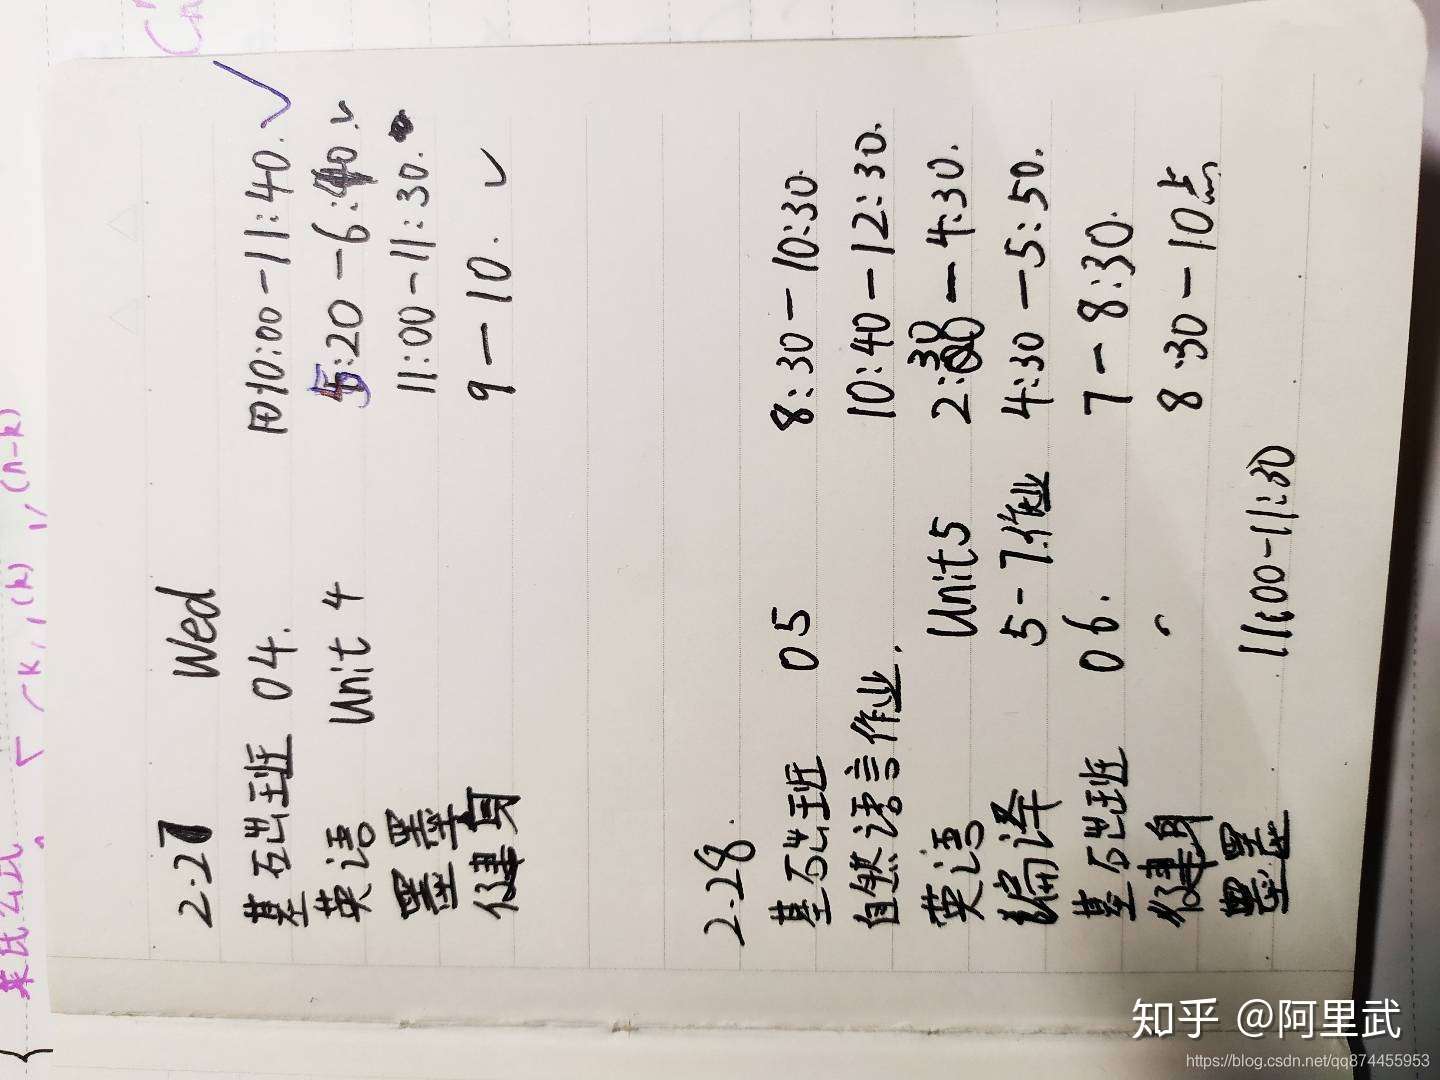 2.27 Wed
基础班 04. 10:00-11:40.
英语 Unit 4 5:20-6:40.
墨墨 11:00-11:30.
健身 9-10.
2.28
基础班 05 8:30-10:30.
自然语言作业. 10:40-12:30.
英语 Unit5 2:30-4:30.
编译 5-7作业 4:30-5:50.
基础班 06. 7-8:30.
健身 8:30-10点
墨墨 11:00-11:30
知乎 @阿里武
https://blog.csdn.net/qq874455953